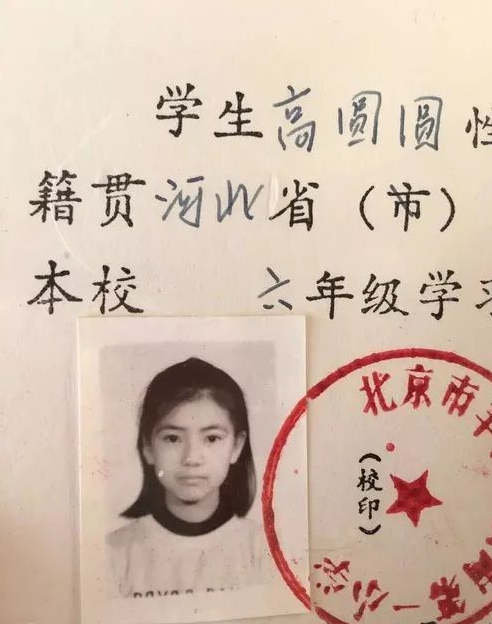 学生高圆圆性
籍贯河北省（市）
本校 六年级学
北京市
（校印）
第一